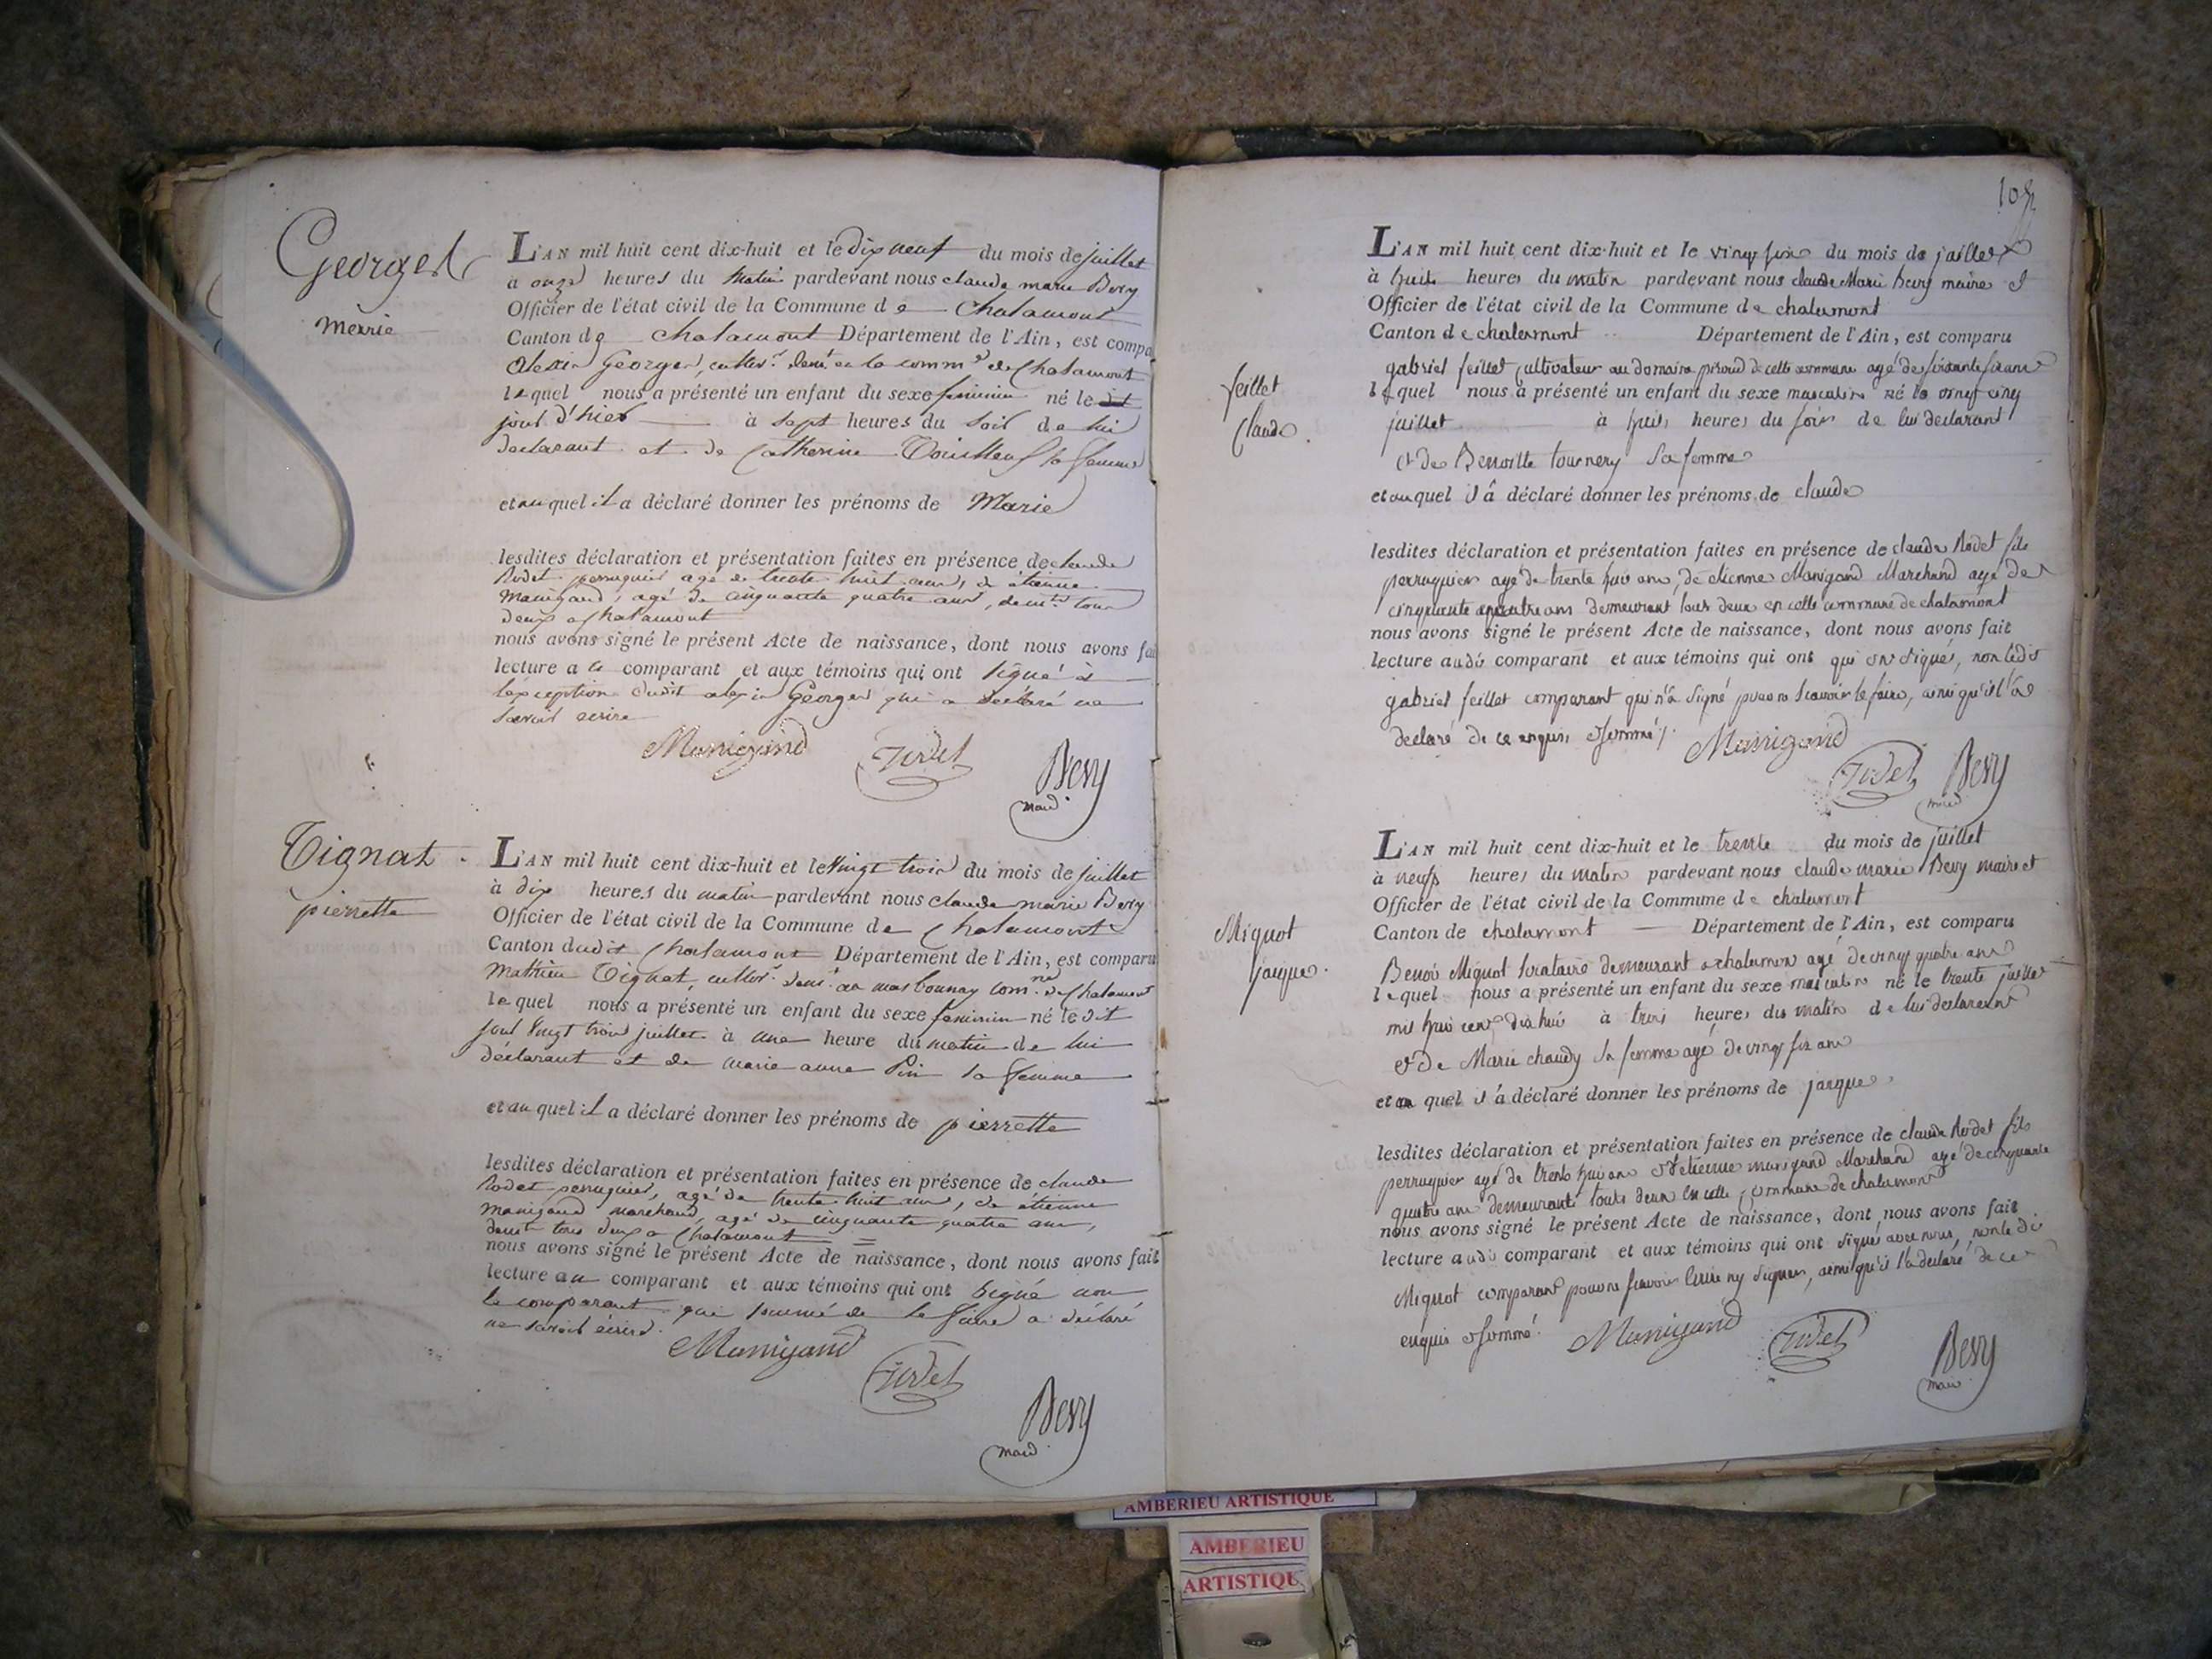 Georges
Marie
L'AN mil huit cent dix-huit et le dix neuf du mois de juillet
à onze heures du matin pardevant nous claude marie Bevy
Officier de l'état civil de la Commune de Chalamont
Canton de chalamont Département de l'Ain, est compa
Georges, cultr. demt. en la comme. de Chalamont
lequel nous a présenté un enfant du sexe feminin né le
jour d'hier à sept heures du soir de lui
declarant et de Catherine sa femme
et auquel il a déclaré donner les prénoms de Marie
lesdites déclaration et présentation faites en présence de claude
Rodet perruquier agé de trente huit ans, de étienne
Manigand, agé de cinquante quatre ans, demts. tous
deux a Chalamont
nous avons signé le présent Acte de naissance, dont nous avons fai
lecture a le comparant et aux témoins qui ont signé à
l'exception dudit alexis Georges qui a declaré ne
savoir ecrire
Manigand Rodet Bevy
maire
Tignat
pierrette
L'AN mil huit cent dix-huit et le Vingt trois du mois de juillet
à dix heures du matin pardevant nous claude marie Bevy
Officier de l'état civil de la Commune de Chalamont
Canton dudit Chalamont Département de l'Ain, est comparu
Mathieu Tignat, cultr. demt. au mas bounay comne. de Chalamont
lequel nous a présenté un enfant du sexe feminin né le dit
jour Vingt trois juillet à une heure du matin de lui
déclarant et de marie anne Pin sa femme
et auquel il a déclaré donner les prénoms de pierrette
lesdites déclaration et présentation faites en présence de claude
Rodet perruquier, agé de trente huit ans, de étienne
Manigand marchand, agé de cinquante quatre ans,
demt. tous deux a Chalamont
nous avons signé le présent Acte de naissance, dont nous avons fait
lecture au comparant et aux témoins qui ont signé non
le comparant qui sommé de le faire a déclaré
ne savoir écrire.
Manigand
Rodet
Bevy
maire
105
feillet
Claude.
L'AN mil huit cent dix-huit et le vingt six du mois de juillet
à huit heures du matin pardevant nous claude Marie bevy maire et
Officier de l'état civil de la Commune de chalamont
Canton de chalamont Département de l'Ain, est comparu
gabriel feillet cultivateur au domaine piroud de cette commune agé de soixante six ans
lequel nous a présenté un enfant du sexe masculin né le vingt cinq
juillet à huit heures du soir de lui declarant
et de Benoitte tournery sa femme
et auquel il â déclaré donner les prénoms de claude
lesdites déclaration et présentation faites en présence de claude Rodet fils
perruquier agé de trente huit ans, de etienne Manigand Marchand agé de
cinquante quatre ans demeurant tous deux en cette commune de chalamont
nous avons signé le présent Acte de naissance, dont nous avons fait
lecture audit comparant et aux témoins qui ont qui ont signés, non ledit
gabriel feillet comparant qui n'a signé pour ne scavoir le faire, ainsi qu'il l'a
declaré de ce enquis et sommé.
Manigand
Rodet Bevy
maire
Miquot
jacque.
L'AN mil huit cent dix-huit et le trente du mois de juillet
à neufs heures du matin pardevant nous claude marie Bevy maire et
Officier de l'état civil de la Commune de chalamont
Canton de chalamont Département de l'Ain, est comparu
Benoit Miquot demeurant a chalamon agé de vingt quatre ans
lequel nous a présenté un enfant du sexe masculin né le trente juillet
mil huit cent dix huit à trois heures du matin de lui declarant
et de Marie chaudy sa femme agé de vingt six ans
et au quel il a déclaré donner les prénoms de jacque.
lesdites déclaration et présentation faites en présence de claude Rodet fils
perruquier agé de trente huit ans et etienne manigand Marchand agé de cinquante
quatre ans demeurant touts deux en cette commune de chalamont
nous avons signé le présent Acte de naissance, dont nous avons fait
lecture audit comparant et aux témoins qui ont signés avec nous, non le dit
Miquot comparant pour ne scavoir lire ny signer, ainsi qu'il l'a declaré de ce
enquis et sommé.
Manigand Rodet
Bevy
maire
AMBERIEU ARTISTIQUE
AMBERIEU
ARTISTIQU